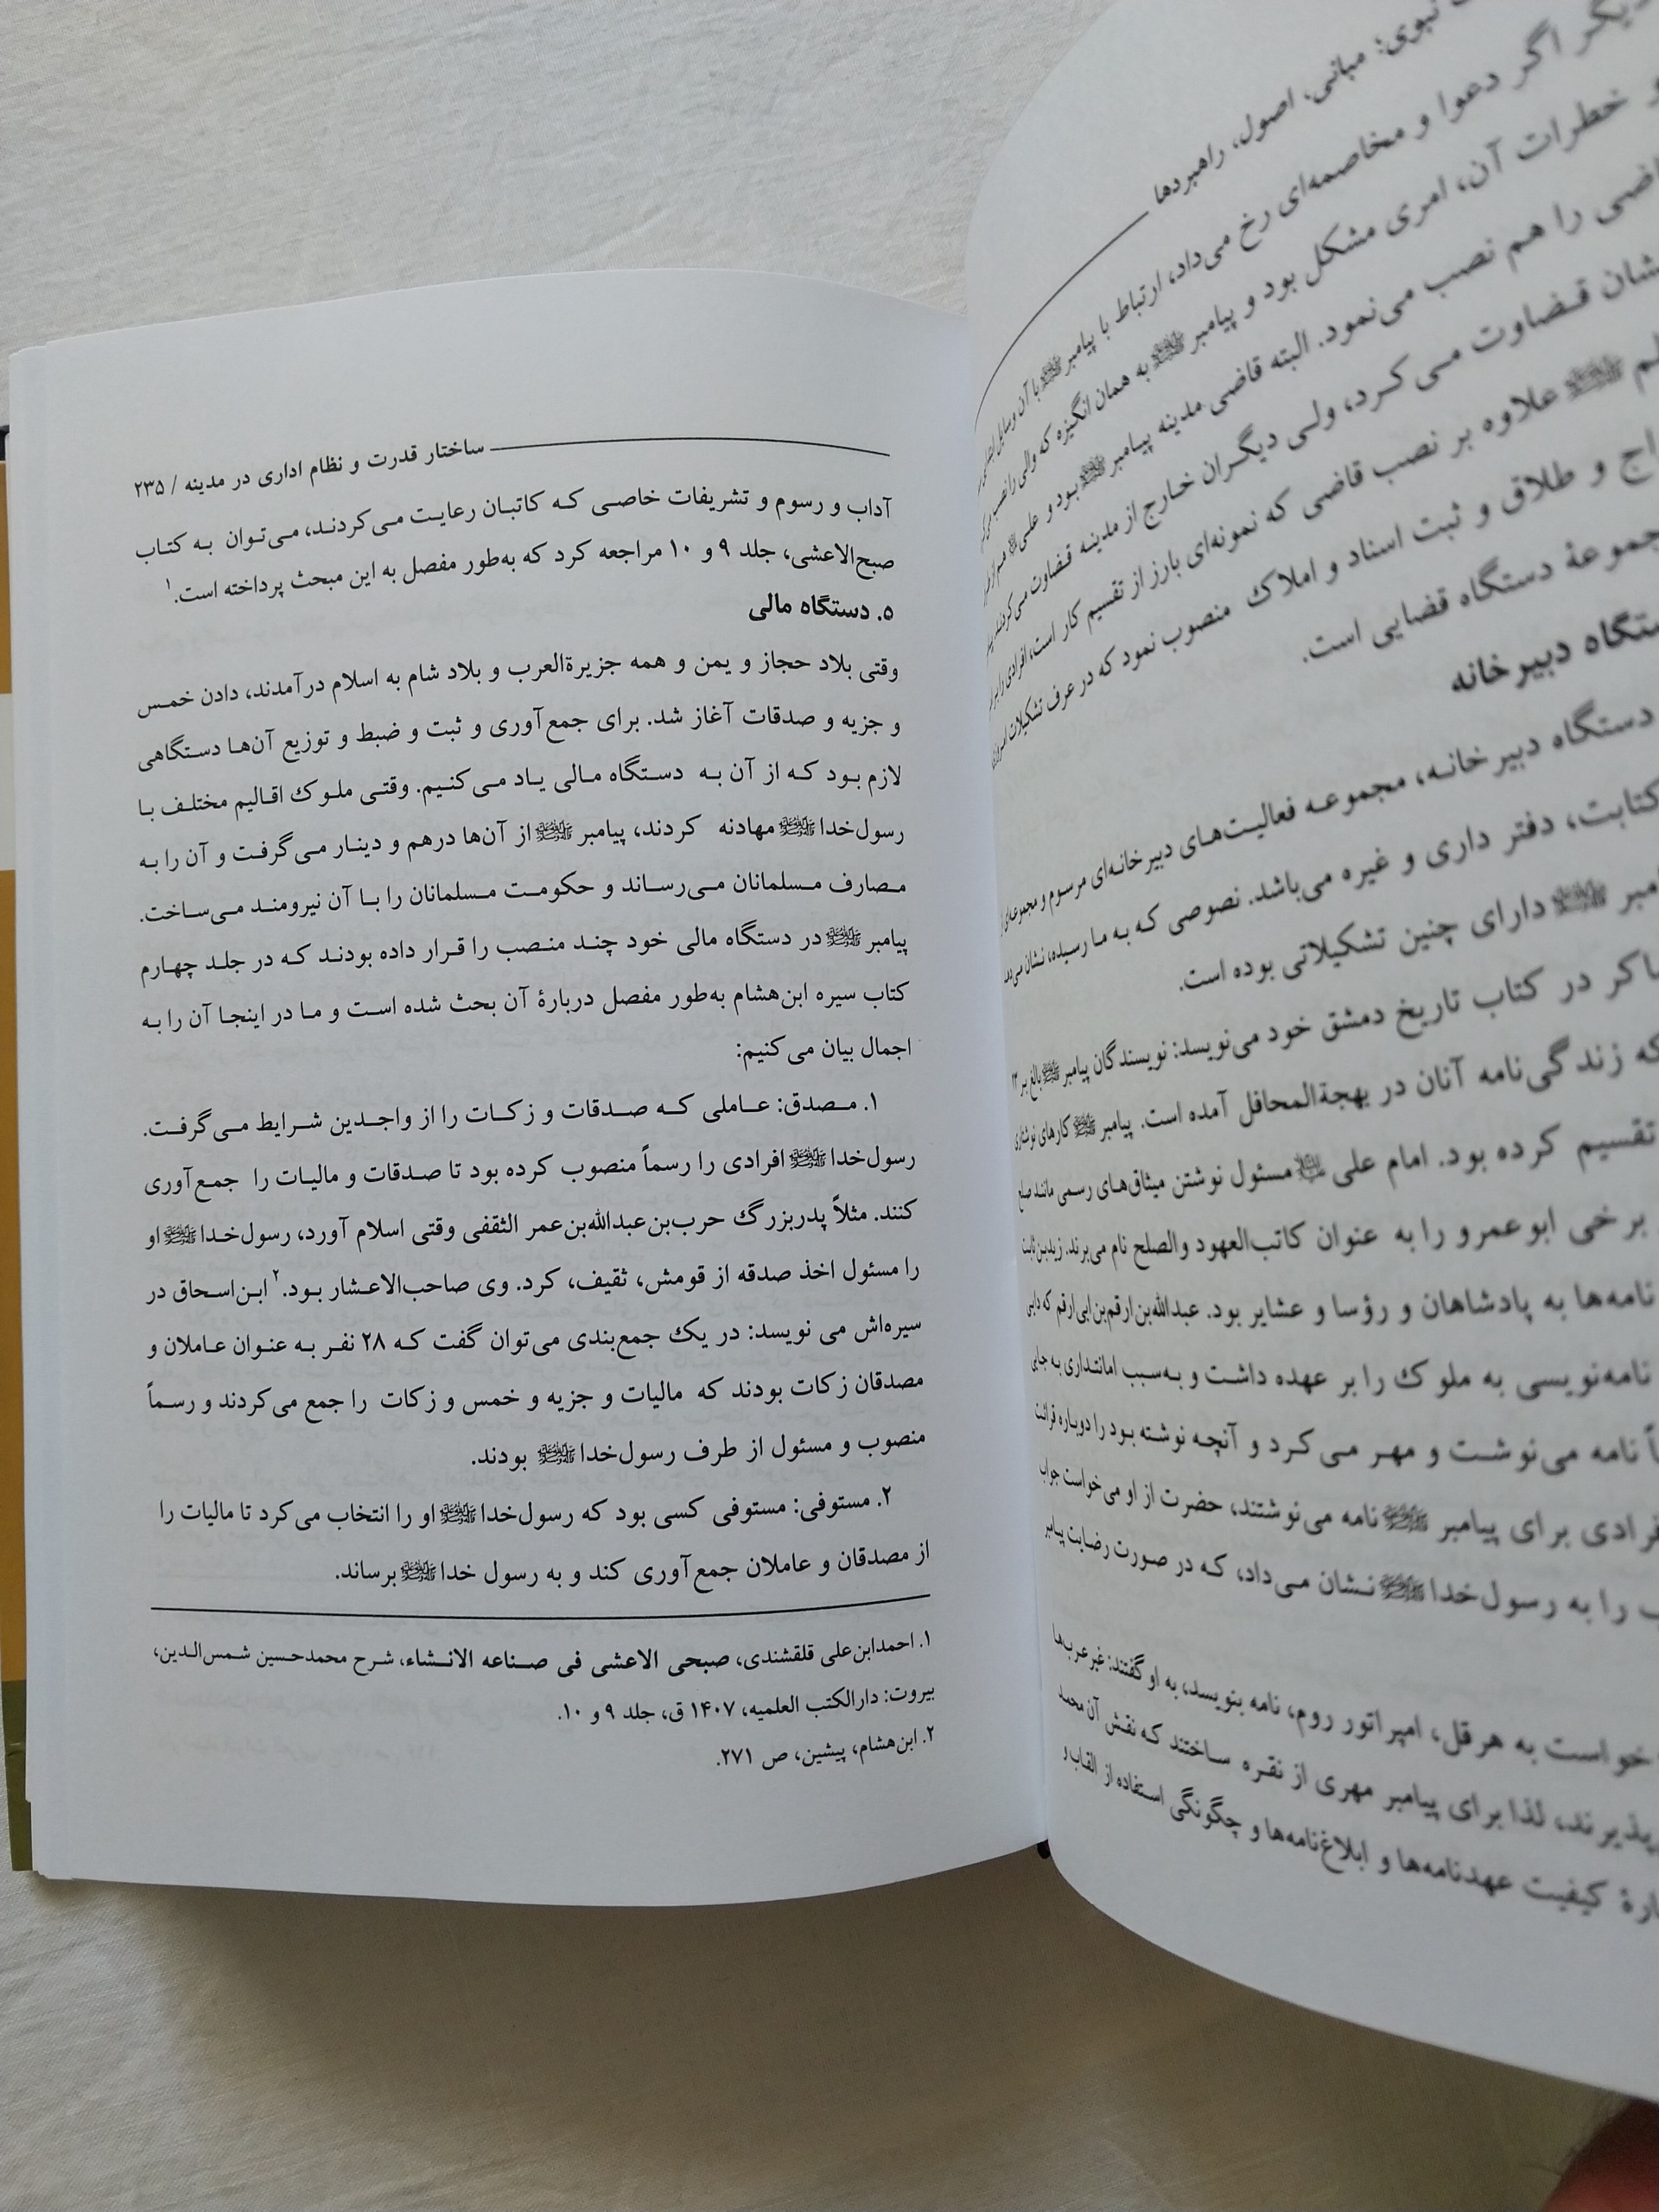 نبوی؛ مبانی، اصول، راهبردها
دیگر اگر دعوا و مخاصمه‌ای رخ می‌داد، ارتباط با پیامبر ﷺ با آن وسایل
و خطرات آن، امری مشکل بود و پیامبر ﷺ به همان انگیزه که والی را نصب
را هم نصب می‌نمود. البته قاضی مدینه پیامبر ﷺ بود و علی
قضاوت می‌کرد، ولی دیگران خارج از مدینه قضاوت می‌کردند
ﷺ علاوه بر نصب قاضی که نمونه‌ای بارز از تقسیم کار است، افرادی را
و طلاق و ثبت اسناد و املاک منصوب نمود که در عرف تشکیلات
دستگاه قضایی است.
دبیرخانه
دستگاه دبیرخانه، مجموعه فعالیت‌های دبیرخانه‌ای مرسوم و مجموعه‌ای
کتابت، دفتر داری و غیره می‌باشد. نصوصی که به ما رسیده، نشان می‌دهد
ﷺ دارای چنین تشکیلاتی بوده است.
در کتاب تاریخ دمشق خود می‌نویسد: نویسندگان پیامبر ﷺ بالغ بر ۲۳
که زندگی‌نامه آنان در بهجةالمحافل آمده است. پیامبر ﷺ کارهای نوشتاری
تقسیم کرده بود. امام علی مسئول نوشتن میثاق‌های رسمی مانند صلح
برخی ابوعمرو را به عنوان کاتب‌العهود والصلح نام می‌برند. زیدبن‌ثابت
نامه‌ها به پادشاهان و رؤسا و عشایر بود. عبدالله‌بن‌ارقم‌بن‌ابی‌ارقم که دایی
نامه‌نویسی به ملوک را بر عهده داشت و به‌سبب امانتداری به جای
نامه می‌نوشت و مهر می‌کرد و آنچه نوشته بود را دوباره قرائت
برای پیامبر ﷺ نامه می‌نوشتند، حضرت از او می‌خواست جواب
را به رسول‌خدا ﷺ نشان می‌داد، که در صورت رضایت پیامبر
خواست به هرقل، امپراتور روم، نامه بنویسد، به او گفتند: غیرعرب‌ها
لذا برای پیامبر مهری از نقره ساختند که نقش آن محمد
کیفیت عهدنامه‌ها و ابلاغ‌نامه‌ها و چگونگی استفاده از القاب و
ساختار قدرت و نظام اداری در مدینه / ۲۳۵
آداب و رسوم و تشریفات خاصی که کاتبان رعایت می‌کردند، می‌توان به کتاب
صبح‌الاعشی، جلد ۹ و ۱۰ مراجعه کرد که به‌طور مفصل به این مبحث پرداخته است.۱
۵. دستگاه مالی
وقتی بلاد حجاز و یمن و همه جزیرةالعرب و بلاد شام به اسلام درآمدند، دادن خمس
و جزیه و صدقات آغاز شد. برای جمع‌آوری و ثبت و ضبط و توزیع آن‌ها دستگاهی
لازم بود که از آن به دستگاه مالی یاد می‌کنیم. وقتی ملوک اقالیم مختلف با
رسول‌خدا ﷺ مهادنه کردند، پیامبر ﷺ از آن‌ها درهم و دینار می‌گرفت و آن را به
مصارف مسلمانان می‌رساند و حکومت مسلمانان را با آن نیرومند می‌ساخت.
پیامبر ﷺ در دستگاه مالی خود چند منصب را قرار داده بودند که در جلد چهارم
کتاب سیره ابن‌هشام به‌طور مفصل دربارهٔ آن بحث شده است و ما در اینجا آن را به
اجمال بیان می‌کنیم:
۱. مصدق: عاملی که صدقات و زکات را از واجدین شرایط می‌گرفت.
رسول‌خدا ﷺ افرادی را رسماً منصوب کرده بود تا صدقات و مالیات را جمع‌آوری
کنند. مثلاً پدربزرگ حرب‌بن‌عبدالله‌بن‌عمر الثقفی وقتی اسلام آورد، رسول‌خدا ﷺ او
را مسئول اخذ صدقه از قومش، ثقیف، کرد. وی صاحب‌الاعشار بود.۲ ابن‌اسحاق در
سیره‌اش می نویسد: در یک جمع‌بندی می‌توان گفت که ۲۸ نفر به عنوان عاملان و
مصدقان زکات بودند که مالیات و جزیه و خمس و زکات را جمع می‌کردند و رسماً
منصوب و مسئول از طرف رسول‌خدا ﷺ بودند.
۲. مستوفی: مستوفی کسی بود که رسول‌خدا ﷺ او را انتخاب می‌کرد تا مالیات را
از مصدقان و عاملان جمع‌آوری کند و به رسول خدا ﷺ برساند.
۱. احمدابن‌علی قلقشندی، صبحی الاعشی فی صناعه الانشاء، شرح محمدحسین شمس‌الدین،
بیروت: دارالکتب العلمیه، ۱۴۰۷ ق، جلد ۹ و ۱۰.
۲. ابن‌هشام، پیشین، ص ۲۷۱.